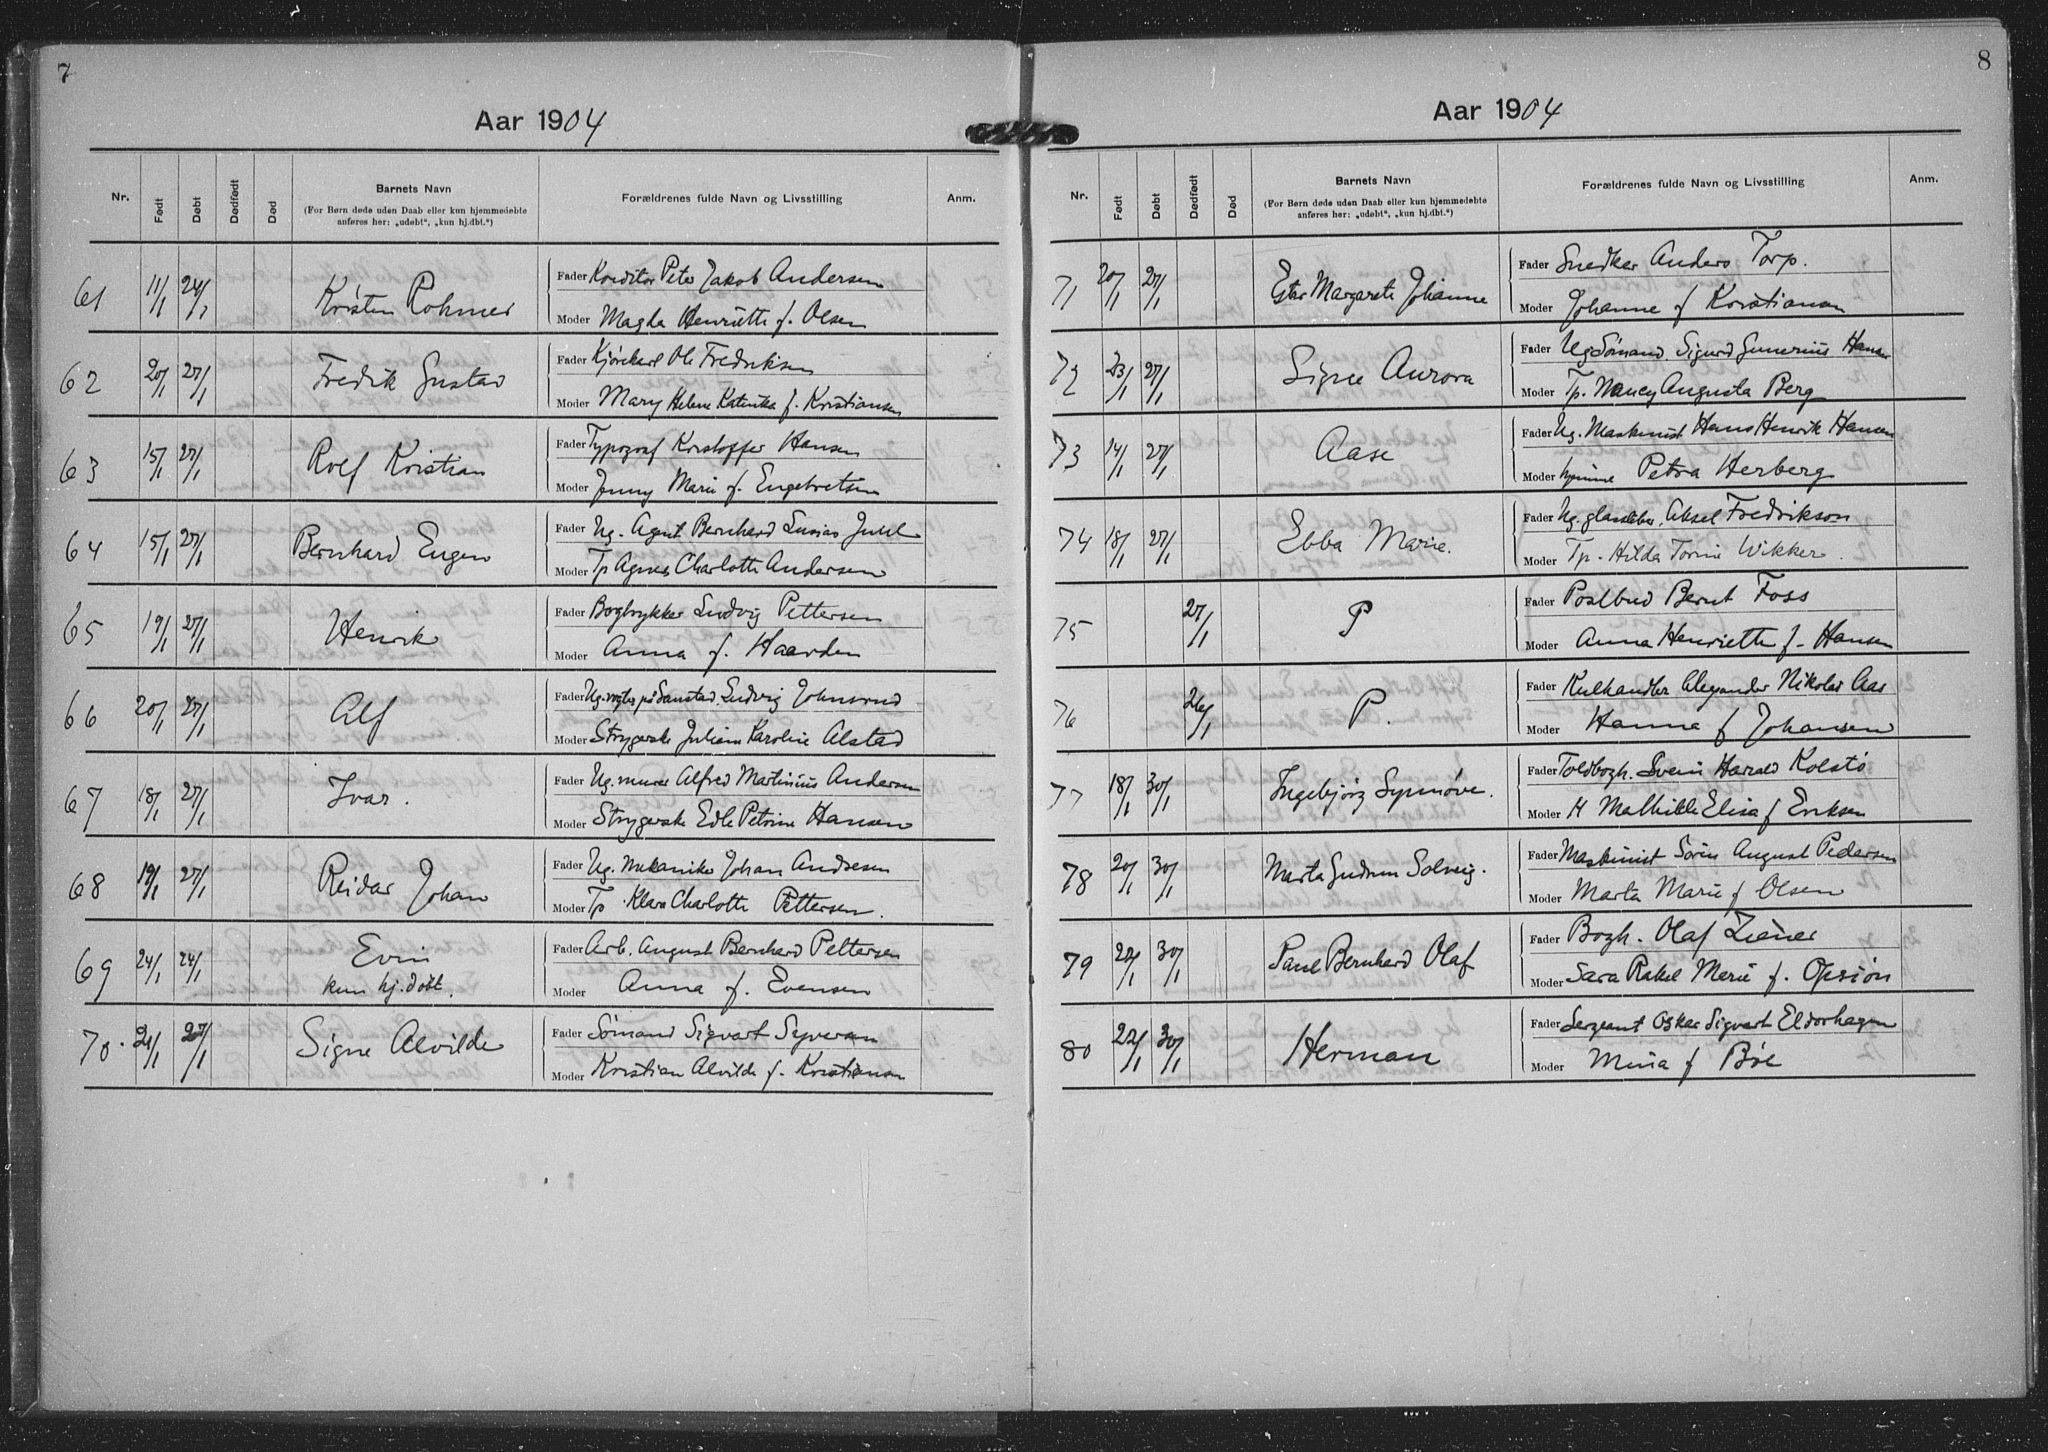 7
Aar 1904
Nr. Født Døbt Dødfødt Død Barnets Navn Forældrenes fulde Navn og Livsstilling Anm.
(For Børn døde uden Daab eller kun hjemmedøbte
anføres her: „udøbt“, „kun hj.dbt.“)
61 11/1 24/1 Kristen Rohmer Fader Konditor Peter Jakob Andersen
Moder Magda Henriette f. Olsen
62 20/1 27/1 Fredik Gustav Fader Kjørekarl Ole Fredriksen
Moder Mary Helene Katinka f. Kristiansen
63 15/1 27/1 Rolf Kristian Fader Typograf Kristoffer Hansen
Moder Jenny Marie f. Engebretsen
64 15/1 27/1 Bernhard Eugen Fader Ug. Agent Bernhard Juul
Moder Tp Agnes Charlotte Andersen
65 19/1 27/1 Henrik Fader Bogtrykker Ludvig Pettersen
Moder Anna f. Haarden
66 20/1 27/1 Alf Fader Ug. Ludvig Johnsrud
Moder Strygerske Julian Karoline Alstad
67 18/1 27/1 Ivar. Fader Ug. murer Alfred Martinius Andersen
Moder Strygerske Edle Petrine Hansen
68 19/1 27/1 Reidar Johan Fader Ug. Mekaniker Johan Andresen
Moder Tp Klara Charlotte Pettersen.
69 24/1 24/1 Evin Fader Arb. August Bernhard Pettersen
kun hj. døbt. Moder Anna f. Evensen
70. 21/1 27/1 Signe Alvilde Fader Sømand Sigvart Syversen
Moder Kristian Alvilde f. Kristiansen
8
Aar 1904
Nr. Født Døbt Dødfødt Død Barnets Navn Forældrenes fulde Navn og Livsstilling Anm.
(For Børn døde uden Daab eller kun hjemmedøbte
anføres her: „udøbt“, „kun hj.dbt.“)
71 20/1 27/1 Ester Margarete Johanne Fader Snedker Anders Torp.
Moder Johanne f Kristiansen
72 23/1 27/1 Signe Aurora Fader Ug Sømand. Sigurd Gunerius Hansen
Moder Tp. Nancy Augusta Berg
73 14/1 27/1 Aase Fader Ug. Maskinist Hans Henrik Hansen
Moder Petra Herberg
74 18/1 27/1 Ebba Marie. Fader Ug. glassliber. Aksel Fredrikson
Moder Tp. Hilda Torine Wikker.
75 27/1 P Fader Postbud Bernt Foss
Moder Anna Henriette f. Hansen
76 26/1 P. Fader Kulhandler Alexander Nikolai Aas
Moder Hanna f Johansen
77 18/1 30/1 Ingebjørg Synnøve. Fader Toldbogh. Svein Harald Kolstø
Moder H Mathilde Elisa f Eriksen
78 20/1 30/1 Marta Gudrun Solveig. Fader Maskinist Sørin August Pedersen
Moder Marta Marie f Olsen
79 22/1 30/1 Paul Bernhard Olaf Fader Bogh. Olaf Ziener
Moder Sara Rakel Marie f. Opsiøn
80 22/1 30/1 Herman Fader Sergeant Oskar Sigvart Eldorhagen
Moder Mina f Bøe